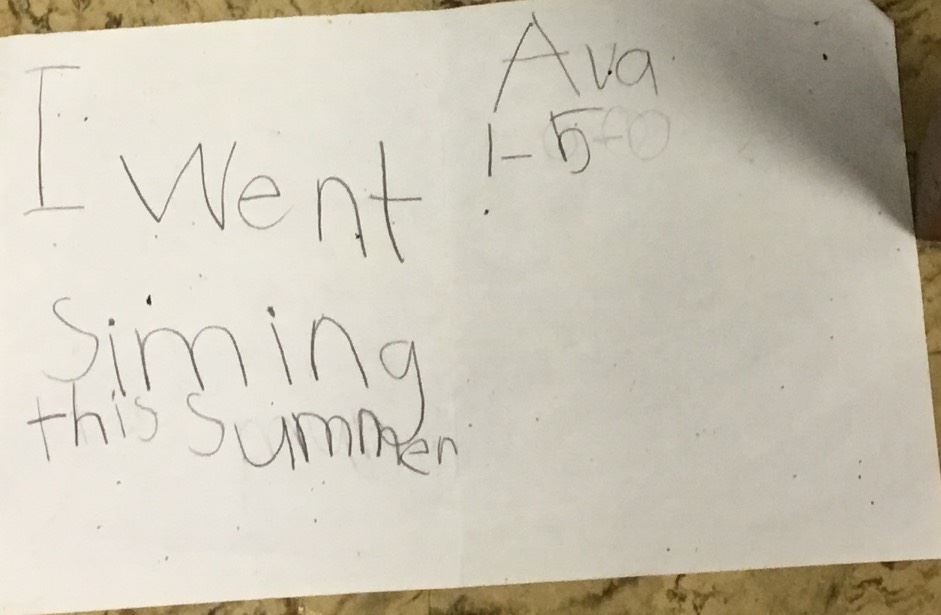 Ava
1-5
I went
Siming
this Summer